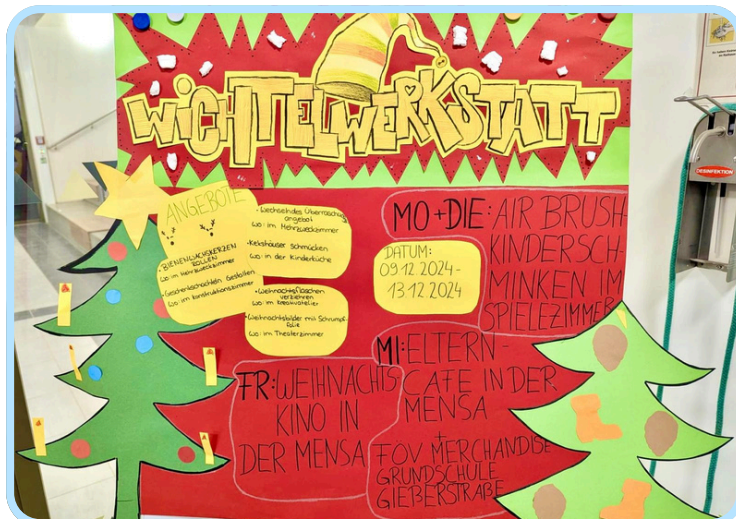 WICHTELWERKSTATT
ANGEBOTE
• BIENENWACHSKERZEN
ROLLEN
wo: im Mehrzweckzimmer
• Geschenkschachteln Gestalten
wo: im Konstruktionszimmer
• Wechselndes Überraschungs
angebot
wo: im Mehrzweckzimmer
• Kekshäuser Schmücken
wo: in der Kinderküche
• Weihnachtsflaschen
verziehren
wo: im Kreativatelier
• Weihnachtsbilder mit Schrumpf-
folie
wo: im Theaterzimmer
DATUM:
09.12.2024-
13.12.2024
MO+DIE: AIR BRUSH
KINDERSCH
MINKEN IM
SPIELEZIMMER
MI: ELTERN-
CAFE IN DER
MENSA
+
FÖV MERCHANDISE
GRUNDSCHULE
GIEßERSTRAßE
FR: WEIHNACHTS
KINO IN
DER MENSA
DESINFEKTION